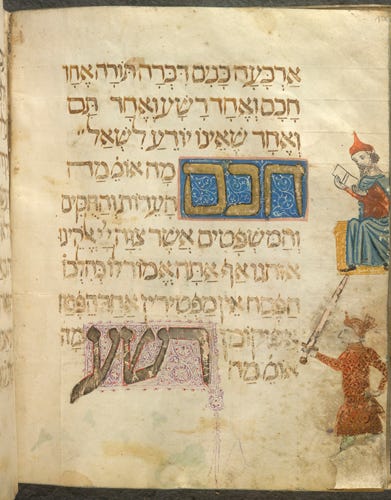 אַרְבָּעָה בָּנִים דִּבְּרָה תּוֹרָה אֶחָד
חָכָם וְאֶחָד רָשָׁע וְאֶחָד תָּם
וְאֶחָד שֶׁאֵינוֹ יוֹדֵעַ לִשְׁאַל
חכם מָה אוֹמֵר
הָעֵדוֹת וְהַחֻקִּים
וְהַמִּשְׁפָּטִים אֲשֶׁר צִוָּה יְיָ אֱלֹהֵינוּ
אוֹתָנוּ אַף אַתָּה אֱמוֹר לוֹ כְּהִלְכוֹ
הַפֶּסַח אֵין מַפְטִירִין אַחַר הַפֶּסַח
אֲפִיקוֹמָן רשע מָה
אוֹמֵר